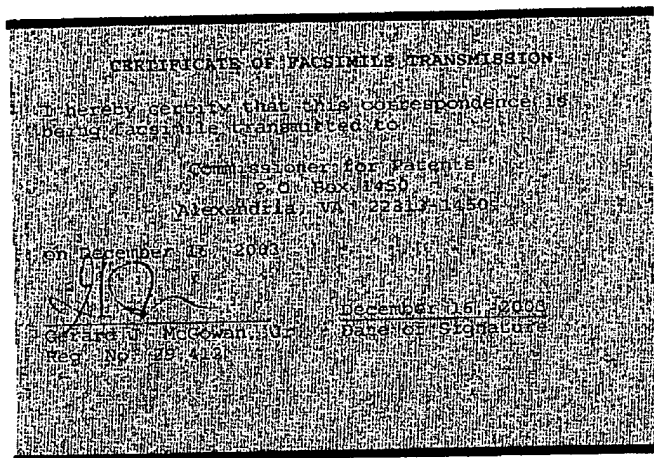 CERTIFICATE OF FACSIMILE TRANSMISSION
I hereby certify that this correspondence is
being facsimile transmitted to
Commissioner for Patents
P.O. Box 1450
Alexandria, VA 22313-1450
on December 2003
December 16, 2003
Gerard J. McGowan, Jr. Date of Signature
Reg. No.